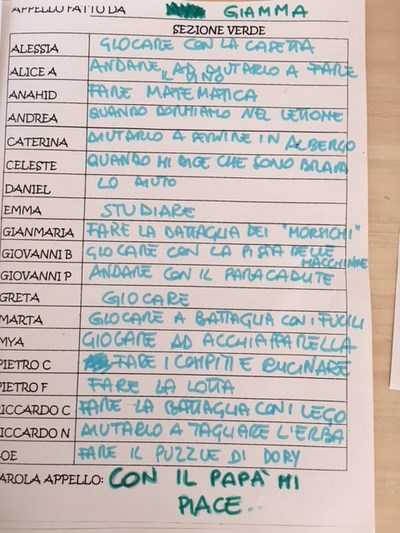 APPELLO FATTO DA GIAMMA
SEZIONE VERDE
ALESSIA GIOCARE CON LA CASETTA
ALICE A ANDARE AD AIUTARLO A FARE
IL VINO
ANAHID FARE MATEMATICA
ANDREA QUANDO DORMIAMO NEL LETTONE
CATERINA AIUTARLO A SERVIRE IN ALBERGO
CELESTE QUANDO MI DICE CHE SONO BRAVA
DANIEL LO AIUTO
EMMA STUDIARE
GIANMARIA FARE LA BATTAGLIA DEI "MORSICHI"
GIOVANNI B GIOCARE CON LA PISTA DELLE
MACCHININE
GIOVANNI P ANDARE CON IL PARACADUTE
GRETA GIOCARE
MARTA GIOCARE A BATTAGLIA CON I FUCILI
MYA GIOCARE AD ACCHIAPPARELLA
PIETRO C FARE I COMPITI E CUCINARE
PIETRO F FARE LA LOTTA
RICCARDO C FARE LA BATTAGLIA CON I LEGO
RICCARDO N AIUTARLO A TAGLIARE L'ERBA
OE FARE IL PUZZLE DI DORY
PAROLA APPELLO: CON IL PAPÀ MI
PIACE..